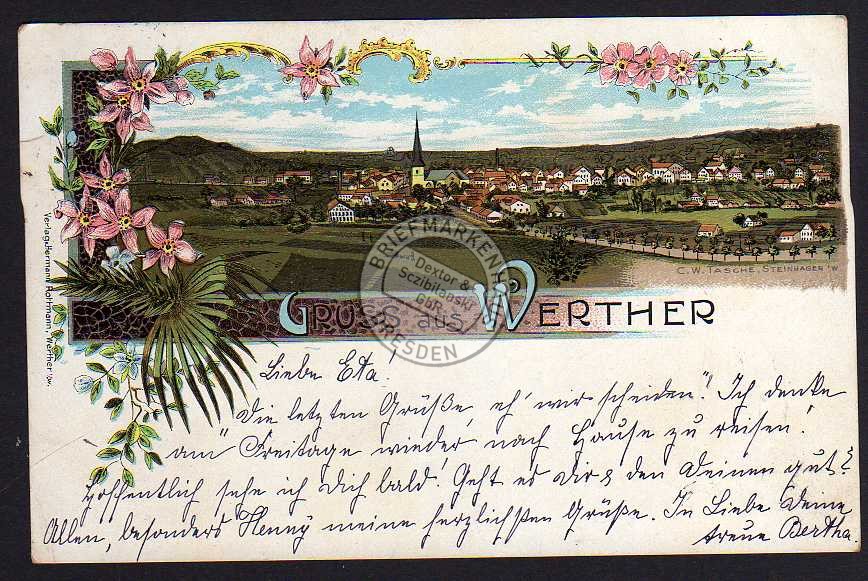 C. W. TASCHE, STEINHAGEN I/W
Verlag: Hermann Holtmann, Werther i/W.
BRIEFMARKEN
Dextor &
Sczibilanski
GbR
DRESDEN
GRUSS AUS WERTHER
Liebe Eta!
Die letzten Grüße, „eh' wir scheiden“! Ich denke
am Freitage wieder nach Hause zu reisen!
Hoffentlich sehe ich Dich bald. Geht es Dir & den Deinen gut?
Allen, besonders Henny meine herzlichsten Grüße. In Liebe Deine
treue Bertha.